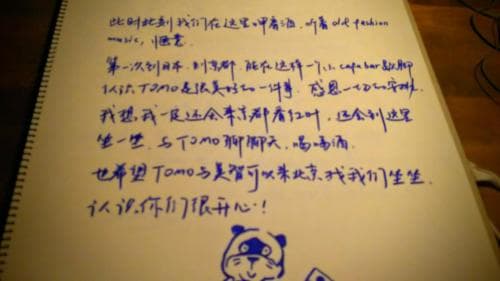 此时此刻我们在这里呷着酒,听着old fashion
music,惬意.
第一次到日本,到京都,能在这样一个小cafe bar里聊
认识TOMO是很美好的一件事,感恩一切的安排.
我想我一定还会来京都看红叶,还会到这里
坐一坐,与TOMO聊聊天,喝喝酒.
也希望TOMO与美智可以来北京找我们坐坐.
认识你们很开心!